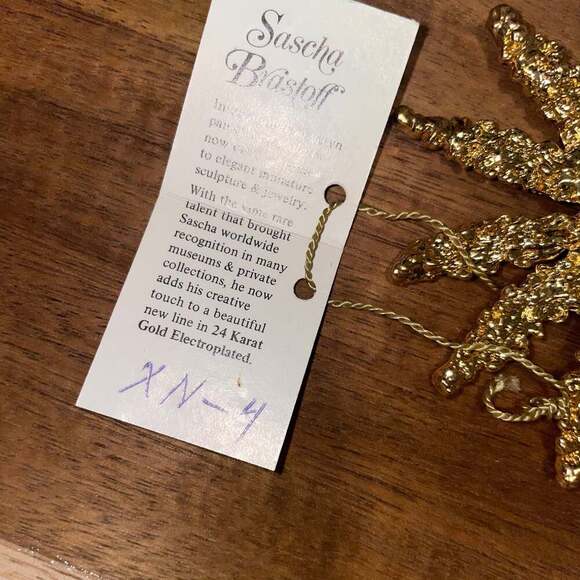 Sascha
Brastoff
now
to elegant miniature
sculpture & jewelry.
With the same rare
talent that brought
Sascha worldwide
recognition in many
museums & private
collections, he now
adds his creative
touch to a beautiful
new line in 24 Karat
Gold Electroplated.
XN-4